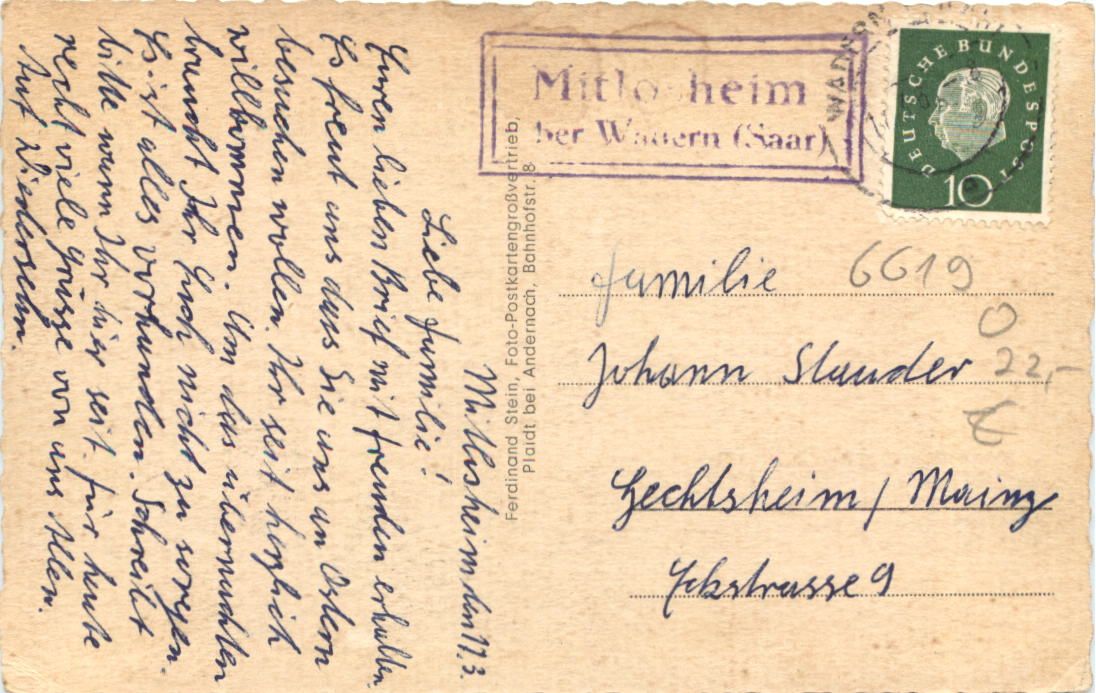 Mitlosheim den 17.3.
Liebe Familie!
Euren lieben Brief mit freuden erhalten.
Es freut uns dass Sie uns an Ostern
besuchen wollen. Ihr seit herzlich
willkommen. Um das übernachten
braucht Ihr Euch nicht zu sorgen.
Es ist alles vorhanden. Schreibt
bitte wann Ihr hier seit. für heute
recht viele Grüsse von uns Allen.
Auf Wiedersehn.
Ferdinand Stein, Foto-Postkartengroßvertrieb,
Plaidt bei Andernach, Bahnhofstr. 8
Mitlosheim
über Wadern (Saar)
DEUTSCHE BUNDESPOST
10
Familie
Johann Stauder
Hechtsheim / Mainz
Eckstrasse 9
6619
0
22,-